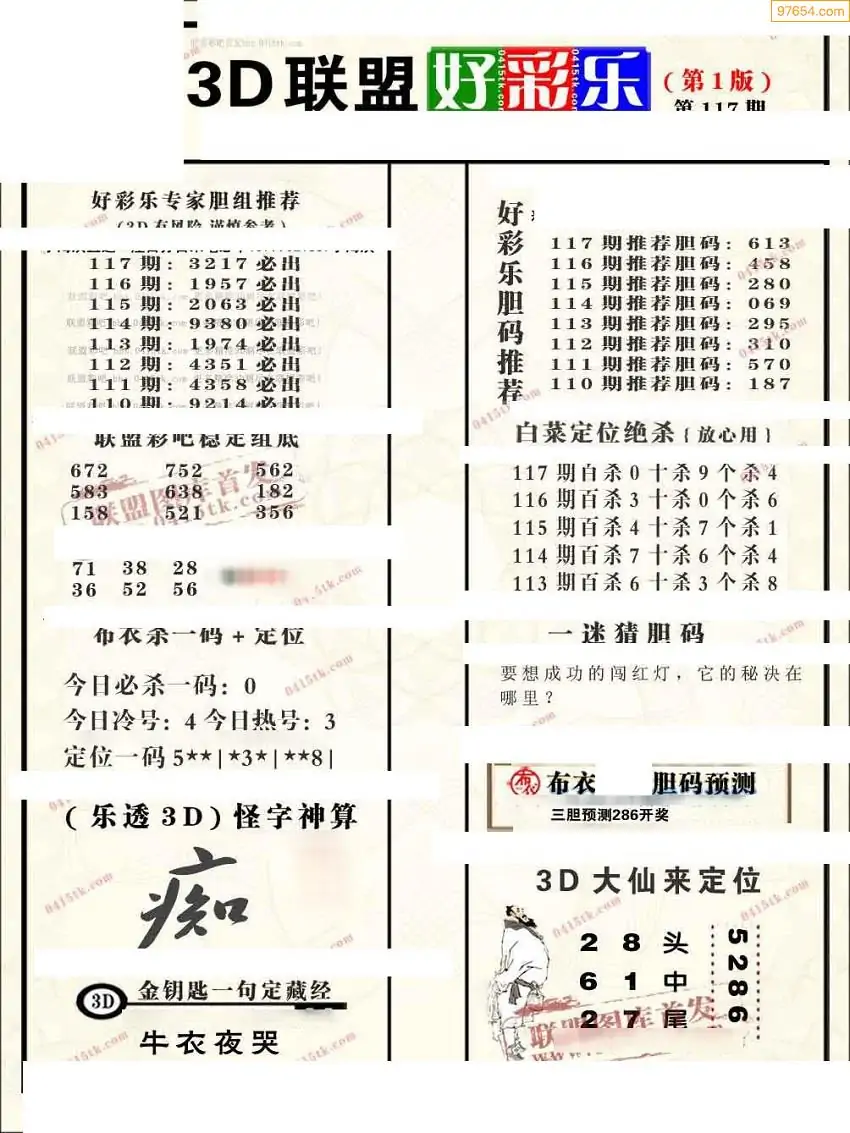 97654.com
3D联盟好彩乐(第1版)
第117期
好彩乐专家胆组推荐
(3D有风险 谨慎参考)
117期: 3217必出
116期: 1957必出
115期: 2063必出
114期: 9380必出
113期: 1974必出
112期: 4351必出
111期: 4358必出
110期: 9214必出
联盟彩吧稳定组底
672 752 562
583 638 182
158 521 356
71 38 28
36 52 56
布衣杀一码+定位
今日必杀一码: 0
今日冷号: 4 今日热号: 3
定位一码 5**|*3*|**8|
(乐透3D)怪字神算
痴
3D 金钥匙一句定藏经
牛衣夜哭
好彩乐胆码推荐
117期推荐胆码: 613
116期推荐胆码: 458
115期推荐胆码: 280
114期推荐胆码: 069
113期推荐胆码: 295
112期推荐胆码: 310
111期推荐胆码: 570
110期推荐胆码: 187
白菜定位绝杀{放心用}
117期百杀0十杀9个杀4
116期百杀3十杀0个杀6
115期百杀4十杀7个杀1
114期百杀7十杀6个杀4
113期百杀6十杀3个杀8
一迷猜胆码
要想成功的闯红灯，它的秘决在
哪里？
布衣 胆码预测
三胆预测286开奖
3D大仙来定位
2 8 头
6 1 中
2 7 尾
5286
联盟图库首发
0415tk.com